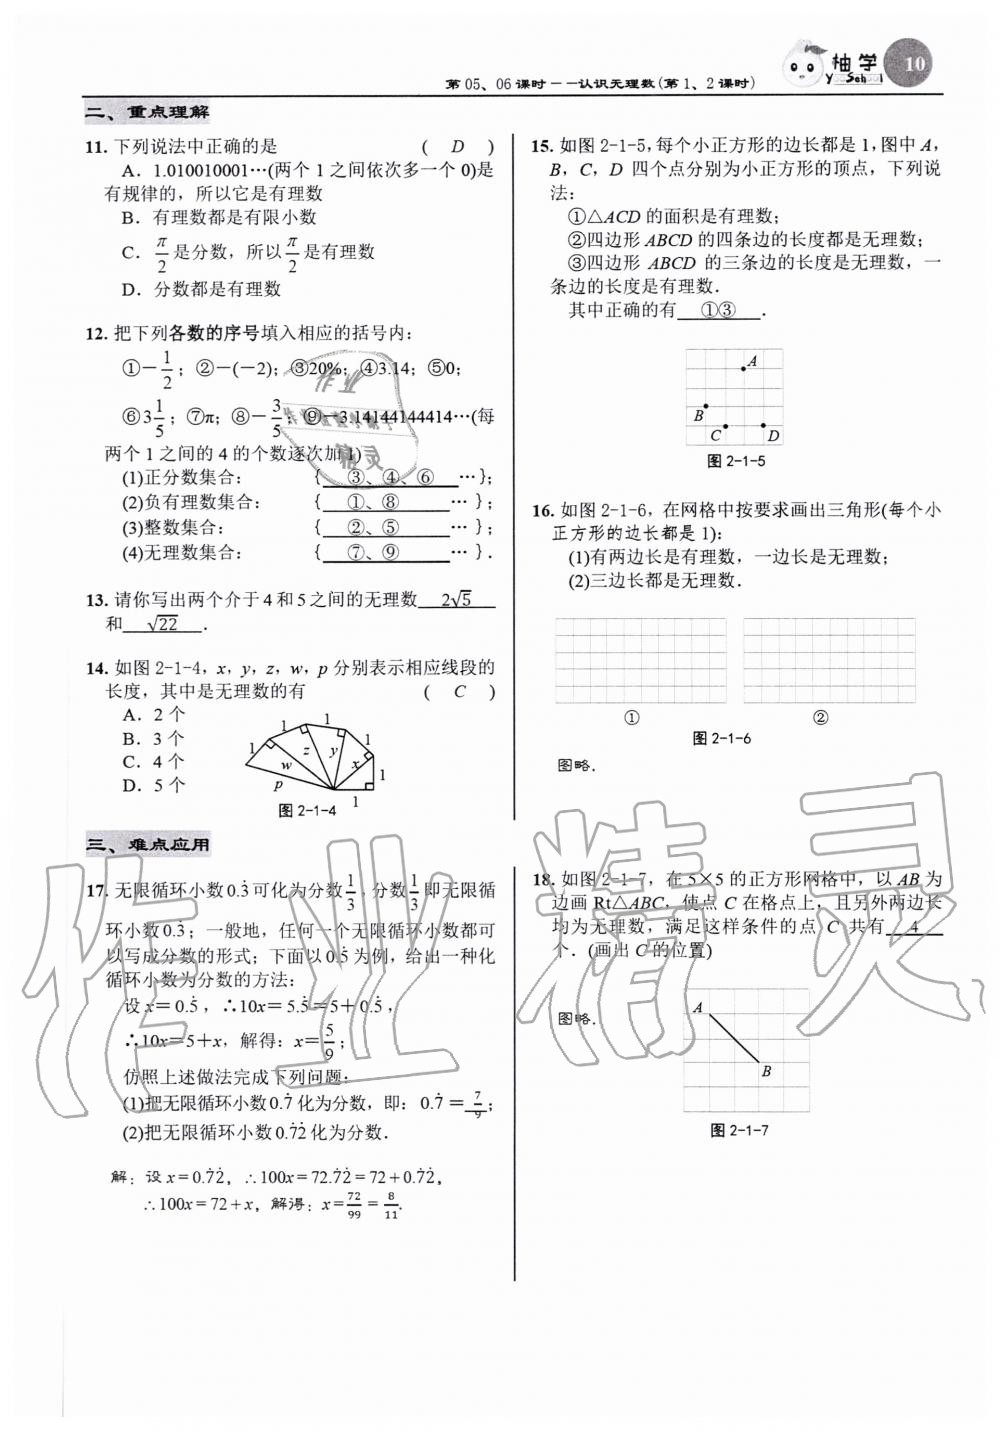 第 05、06 课时－－认识无理数(第 1、2 课时)
柚学
You School
10
二、重点理解
11. 下列说法中正确的是 ( D )
A．1.010010001…(两个 1 之间依次多一个 0)是
有规律的，所以它是有理数
B．有理数都是有限小数
C．π/2 是分数，所以 π/2 是有理数
D．分数都是有理数
12. 把下列各数的序号填入相应的括号内：
①－1/2；②－(－2)；③20%；④3.14；⑤0；
⑥3 1/5；⑦π；⑧－3/5；⑨－3.14144144414…(每
两个 1 之间的 4 的个数逐次加 1)
(1)正分数集合： { ③、④、⑥ …}；
(2)负有理数集合： { ①、⑧ … }；
(3)整数集合： { ②、⑤ … }；
(4)无理数集合： { ⑦、⑨ … }．
13. 请你写出两个介于 4 和 5 之间的无理数 2√5
和 √22 ．
14. 如图 2-1-4，x，y，z，w，p 分别表示相应线段的
长度，其中是无理数的有 ( C )
A．2 个
B．3 个
C．4 个
D．5 个
1 1 1 1 1 1
w z y x p
图 2-1-4
三、难点应用
17. 无限循环小数 0.3̇ 可化为分数 1/3，分数 1/3 即无限循
环小数 0.3̇；一般地，任何一个无限循环小数都可
以写成分数的形式；下面以 0.5̇ 为例，给出一种化
循环小数为分数的方法：
设 x＝0.5̇，∴10x＝5.5̇＝5＋0.5̇，
∴10x＝5＋x，解得：x＝5/9；
仿照上述做法完成下列问题：
(1)把无限循环小数 0.7̇ 化为分数，即：0.7̇＝ 7/9 ；
(2)把无限循环小数 0.7̇2̇ 化为分数．
解：设 x＝0.7̇2̇，∴100x＝72.7̇2̇＝72＋0.7̇2̇，
∴100x＝72＋x，解得：x＝72/99＝8/11.
15. 如图 2-1-5，每个小正方形的边长都是 1，图中 A，
B，C，D 四个点分别为小正方形的顶点，下列说
法：
①△ACD 的面积是有理数；
②四边形 ABCD 的四条边的长度都是无理数；
③四边形 ABCD 的三条边的长度是无理数，一
条边的长度是有理数．
其中正确的有 ①③ ．
A
B
C D
图 2-1-5
16. 如图 2-1-6，在网格中按要求画出三角形(每个小
正方形的边长都是 1)：
(1)有两边长是有理数，一边长是无理数；
(2)三边长都是无理数．
① ②
图 2-1-6
图略．
18. 如图 2-1-7，在 5×5 的正方形网格中，以 AB 为
边画 Rt△ABC，使点 C 在格点上，且另外两边长
均为无理数，满足这样条件的点 C 共有 4
个．(画出 C 的位置)
图略．
A
B
图 2-1-7
作业精灵